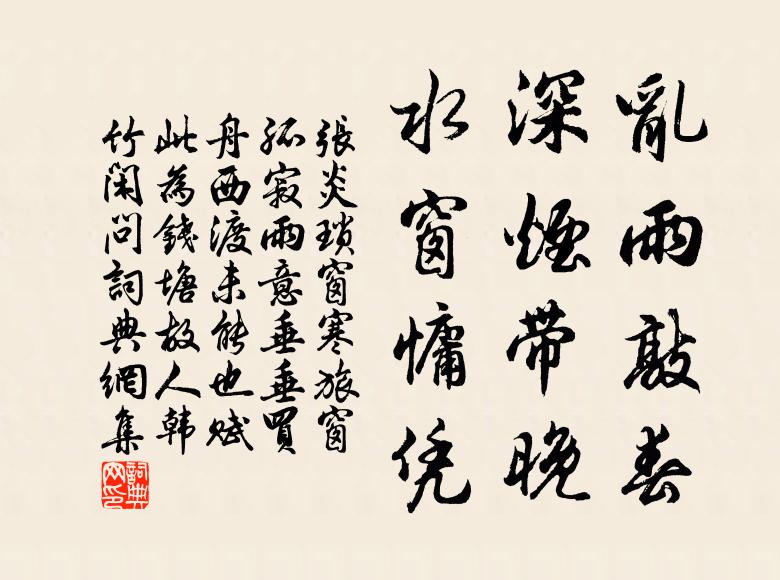 亂雨敲春
深煙帶晚
水窗慵凭
張炎瑣窗寒旅窗
孤寂雨意垂垂買
舟西渡未能也賦
此為錢塘故人韩
竹閑問詞典網集
詞典
网印